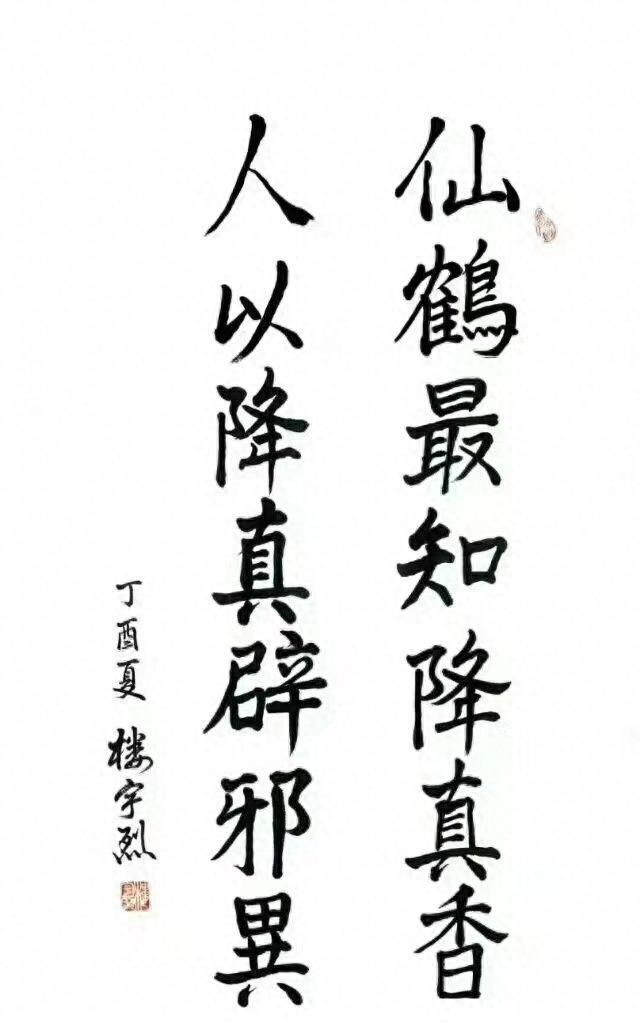 仙鶴最知降真香
人以降真辟邪異
丁酉夏 楼宇烈